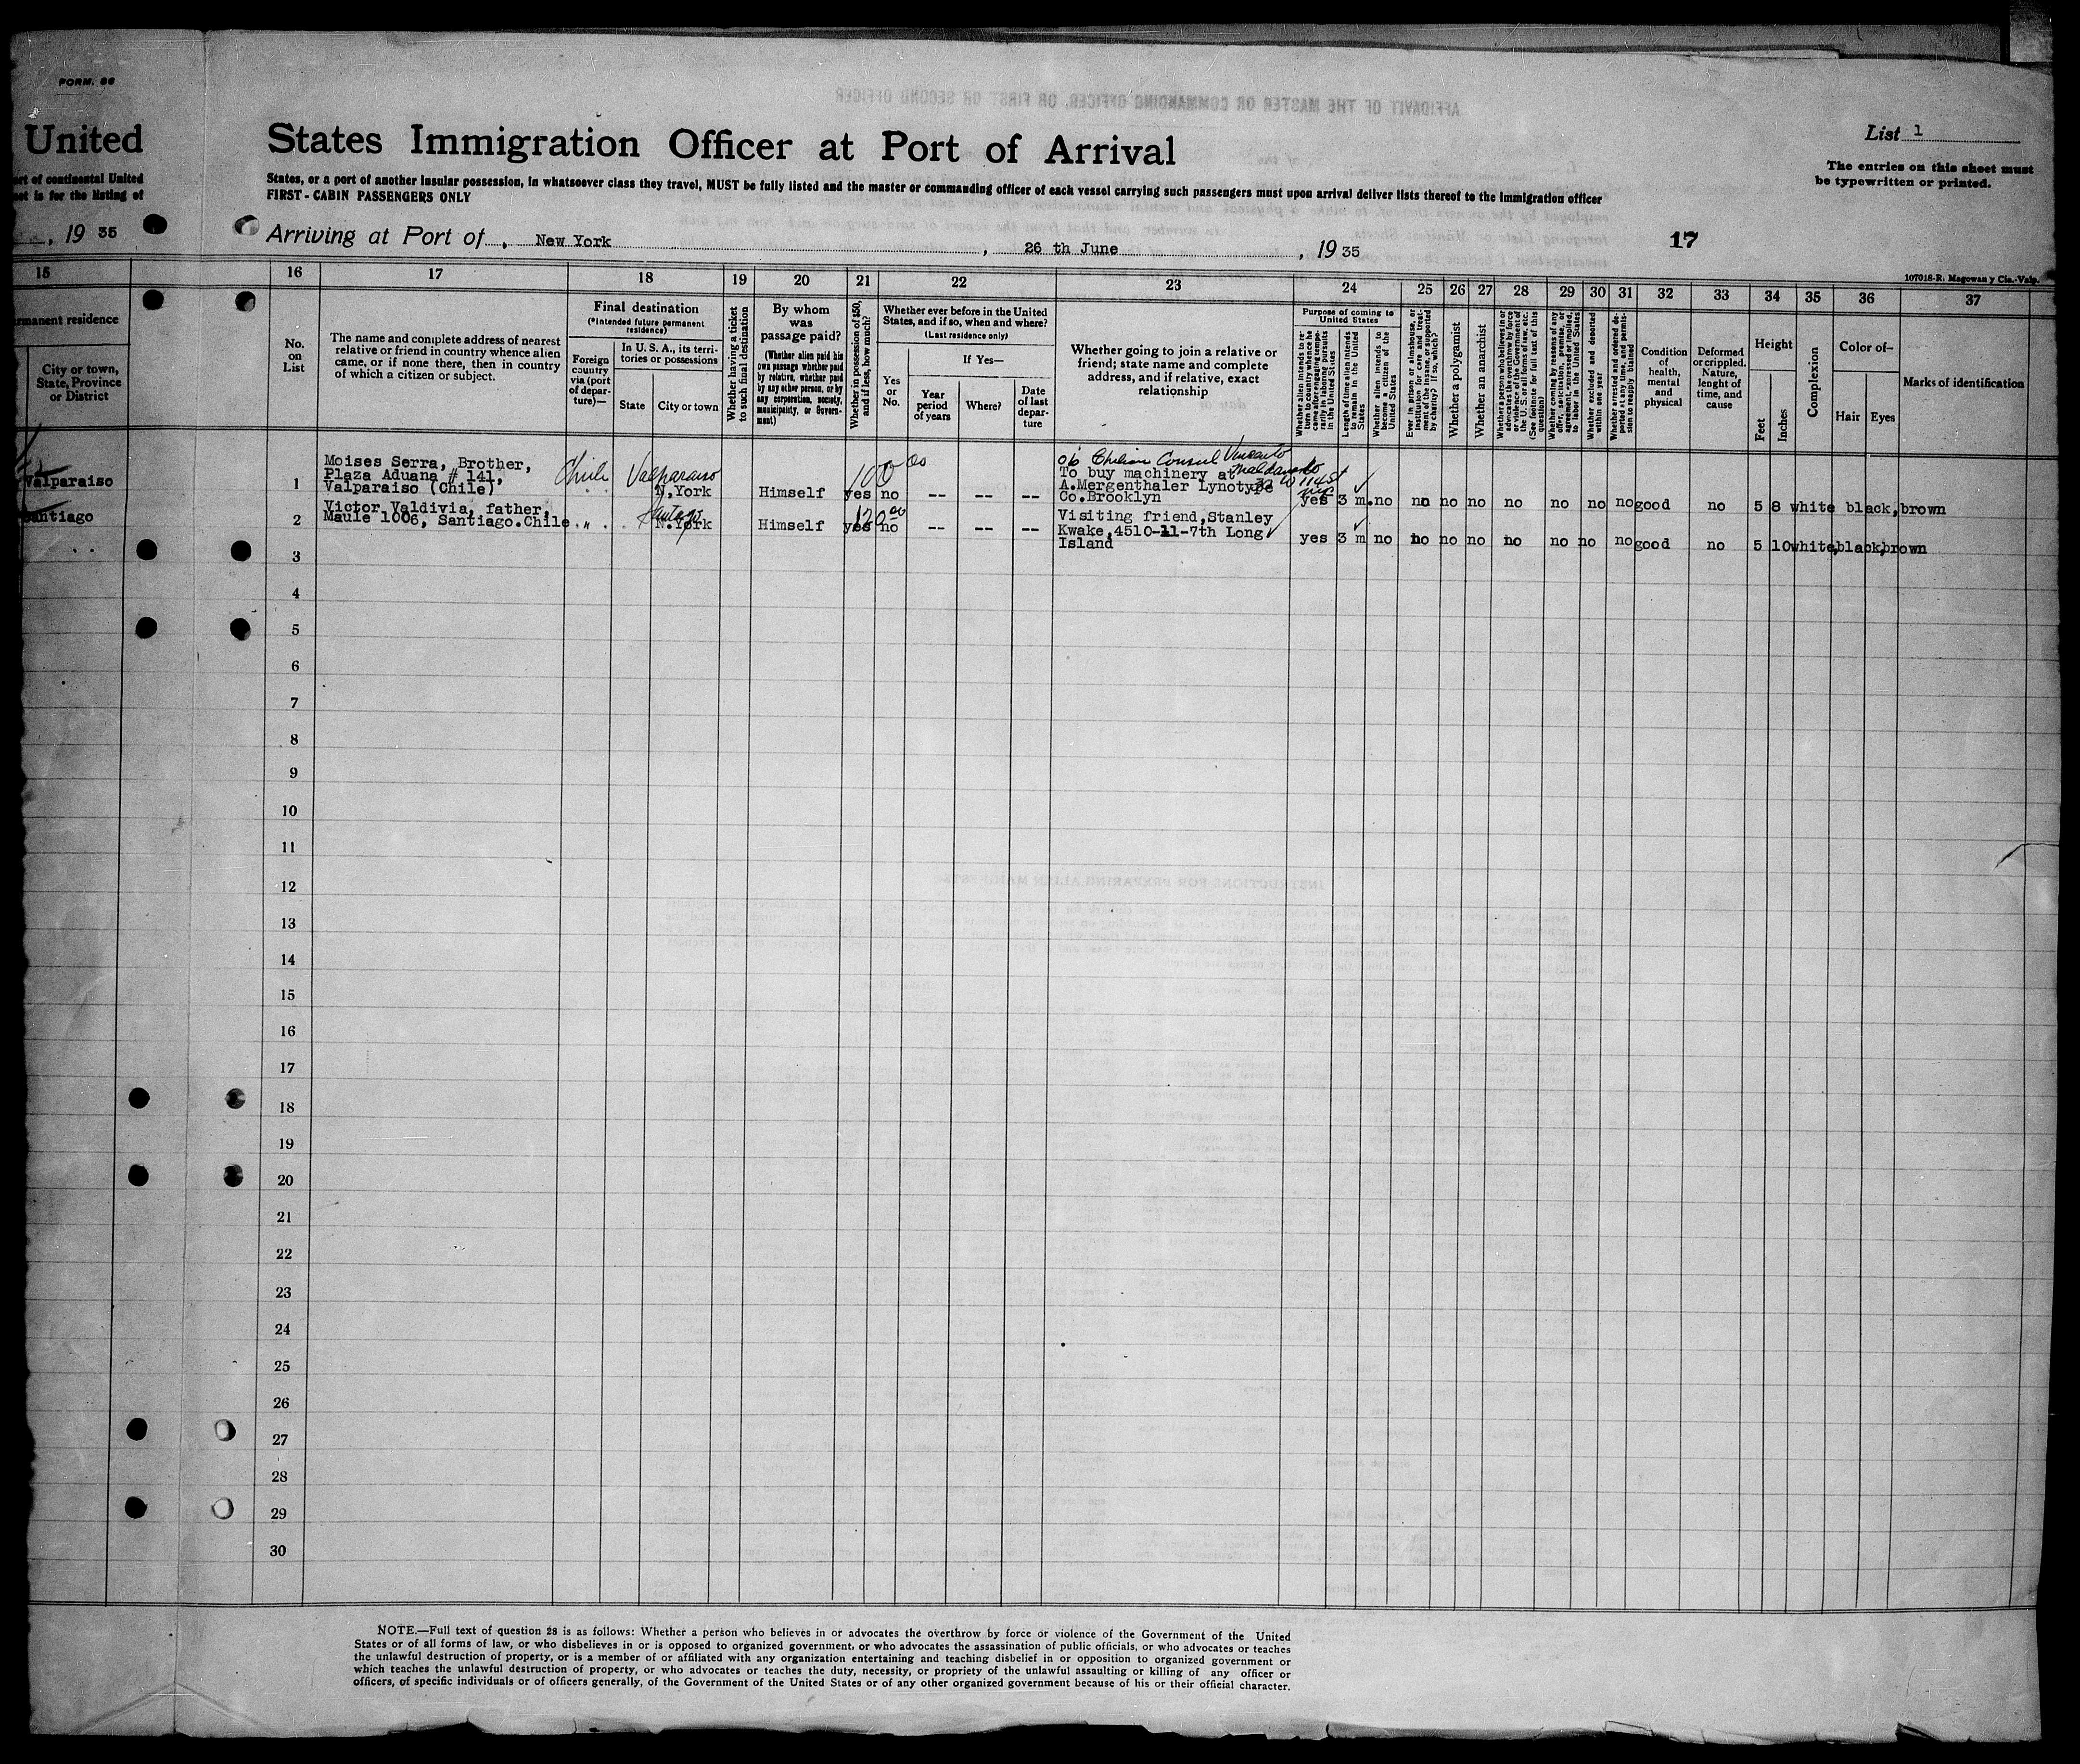 FORM. 86
United States Immigration Officer at Port of Arrival
List 1
The entries on this sheet must
be typewritten or printed.
ort of continental United States, or a port of another insular possession, in whatsoever class they travel, MUST be fully listed and the master or commanding officer of each vessel carrying such passengers must upon arrival deliver lists thereof to the immigration officer
is for the listing of FIRST-CABIN PASSENGERS ONLY
, 19 35
Arriving at Port of New York, 26 th June, 19 35
17
107018-R. Magowan y Cia.-Valp.
15 16 17 18 19 20 21 22 23 24 25 26 27 28 29 30 31 32 33 34 35 36 37
rmanent residence
City or town,
State, Province
or District
No.
on
List
The name and complete address of nearest
relative or friend in country whence alien
came, or if none there, then in country
of which a citizen or subject.
Final destination
(*Intended future permanent
residence)
Foreign
country
via (port
of depar-
ture)—
In U. S. A., its terri-
tories or possessions
State
City or town
Whether having a ticket
to such final destination
By whom
was
passage paid?
(Whether alien paid his
own passage whether paid
by relative, whether paid
by any other person, or by
any corporation, society,
municipality, or Govern-
ment)
Whether in possession of $50,
and if less, how much?
Whether ever before in the United
States, and if so, when and where?
(Last residence only)
Yes
or
No.
If Yes—
Year
period
of years
Where?
Date
of last
depar-
ture
Whether going to join a relative or
friend; state name and complete
address, and if relative, exact
relationship
Purpose of coming to
United States
Whether alien intends to re-
turn to country whence he
came after engaging tempo-
rarily in laboring pursuits
in the United States
Length of time alien intends
to remain in the United
States
Whether alien intends to
become a citizen of the
United States
Ever in prison or almshouse, or
institution for care and treat-
ment of the insane, or supported
by charity? If so, which?
Whether a polygamist
Whether an anarchist
Whether a person who believes in or
advocates the overthrow by force
or violence of the Government of
the U.S. or all forms of law, etc.
(See footnote for full text of this
question)
Whether coming by reasons of any
offer, solicitation, promise, or
agreement, expressed or implied,
to labor in the United States
Whether excluded and deported
within one year
Whether arrested and ordered de-
ported at any time, and permis-
sion to reapply obtained
Condition
of
health,
mental
and
physical
Deformed
or crippled.
Nature,
lenght of
time, and
cause
Height
Feet
Inches
Complexion
Color of—
Hair
Eyes
Marks of identification
Valparaiso
1
Moises Serra, Brother,
Plaza Aduana # 141,
Valparaiso (Chile)
Chile Valparaiso
N.York
Himself
100 00
yes no -- -- --
c/o Chilian Consul
To buy machinery at
A.Mergenthaler Lynotype
Co.Brooklyn
yes 3 m. no no no no no no no no good no 5 8 white black, brown
Santiago
2
Victor Valdivia, father,
Maule 1006, Santiago.Chile
" Santiago
N.York
Himself
120 00
yes no -- -- --
Visiting friend,Stanley
Kwake,4510-11-7th Long
Island
yes 3 m no no no no no no no no good no 5 10 white, black, brown
3
4
5
6
7
8
9
10
11
12
13
14
15
16
17
18
19
20
21
22
23
24
25
26
27
28
29
30
NOTE.—Full text of question 28 is as follows: Whether a person who believes in or advocates the overthrow by force or violence of the Government of the United
States or of all forms of law, or who disbelieves in or is opposed to organized government, or who advocates the assassination of public officials, or who advocates or teaches
the unlawful destruction of property, or is a member of or affiliated with any organization entertaining and teaching disbelief in or opposition to organized government or
which teaches the unlawful destruction of property, or who advocates or teaches the duty, necessity, or propriety of the unlawful assaulting or killing of any officer or
officers, of specific individuals or of officers generally, of the Government of the United States or of any other organized government because of his or their official character.